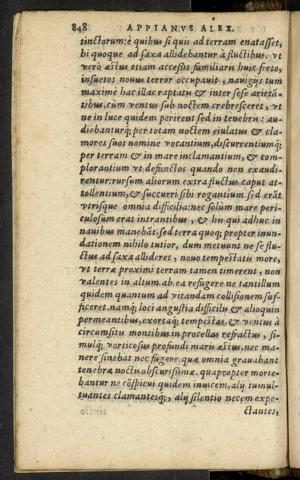 848 APPIANVS ALEX.
tinctorum: è quibus si quis ad terram enatasset,
hi quoque ad saxa allidebantur à fluctibus. vt
verò æstus etiam accessit familiaris huic freto,
insuetos nouus terror occupauit, nauigijs tum
maximè hac illac raptatis & inter sese arietan-
tibus, cùm ventus sub noctem crebresceret, vt
ne in luce quidem perirent sed in tenebris: au-
diebanturq; per totam noctem eiulatus & cla-
mores suos nomine vocantium, discurrentiumq;
per terram & in mare inclamantium, & com-
plorantium vt defunctos quando non exaudi-
rentur: rursum aliorum extra fluctus caput at-
tollentium, & succurri sibi rogantium sed erāt
vtrisque omnia difficilia: nec solùm mare peri-
culosum erat intrantibus, & his qui adhuc in
nauibus manebāt, sed terra quoq; propter inun-
dationem nihilo tutior, dum metuunt ne se flu-
ctus ad saxa allideret, nouo tempestatis more,
vt terræ proximi terram tamen timerent, non
valentes in altum ab ea refugere ne tantillum
quidem quantum ad vitandam collisionem suf-
ficeret. namq; loci angustia difficilis & alioquin
permeantibus, exortaq; tempestas, & ventus à
circumsitis montibus in procellas refractus, si-
mulq; vorticosus profundi maris æstus, nec ma-
nere sinebat nec fugere. quæ omnia grauabant
tenebræ noctis obscurissimæ. quapropter morie-
bantur ne cōspicui quidem inuicem, alij tumul-
tuantes clamantesq;, alij silentio necem expe-
ctantes,